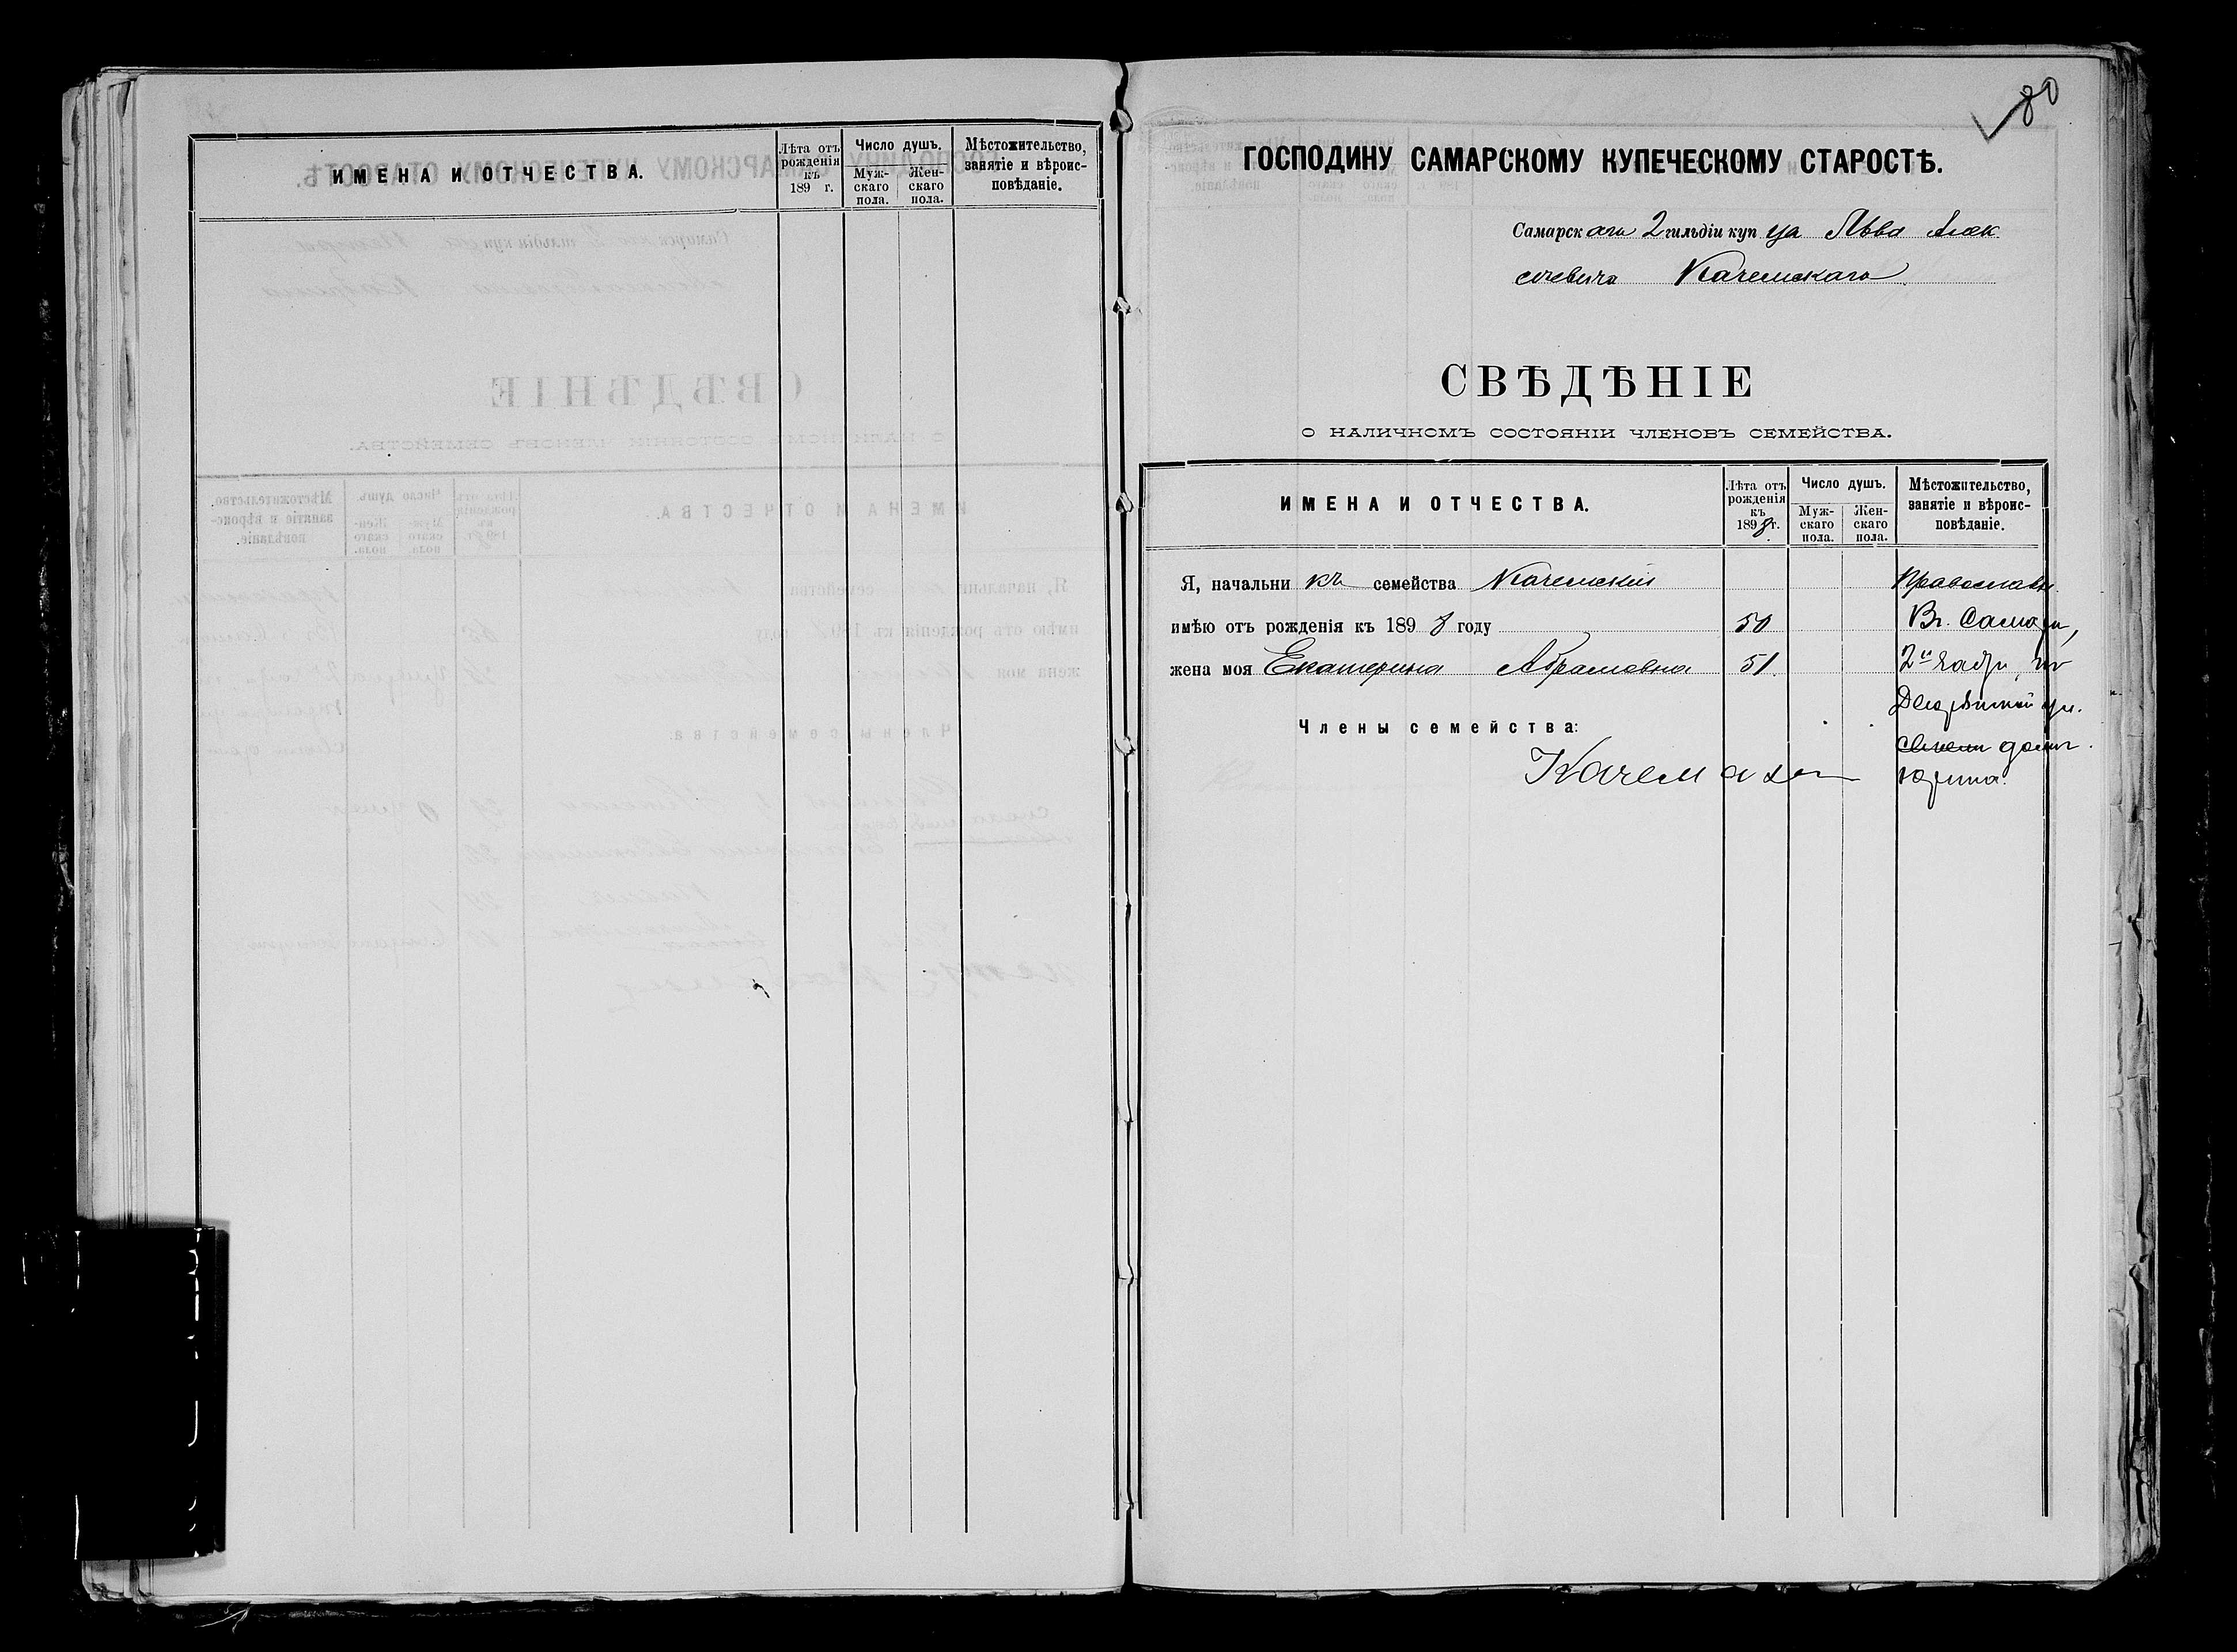 ИМЕНА И ОТЧЕСТВА.
Лѣта отъ рожденія къ 189 г.
Число душъ.
Муж-скаго пола.
Жен-скаго пола.
Мѣстожительство, занятіе и вѣроис-повѣданіе.
80
ГОСПОДИНУ САМАРСКОМУ КУПЕЧЕСКОМУ СТАРОСТѢ.
Самарскаго 2 гильдіи купца Льва Алек
сеевича
СВѢДѢНІЕ
О НАЛИЧНОМЪ СОСТОЯНІИ ЧЛЕНОВЪ СЕМЕЙСТВА.
ИМЕНА И ОТЧЕСТВА.
Лѣта отъ рожденія къ 1898 г.
Число душъ.
Муж-скаго пола.
Жен-скаго пола.
Мѣстожительство, занятіе и вѣроис-повѣданіе.
Я, начальникъ семейства Православн.
имѣю отъ рожденія къ 1898 году 50 Въ Самарѣ,
жена моя Екатерина Абрамовна 51. 2й части, по
ул.
Члены семейства:
своемъ домъ.